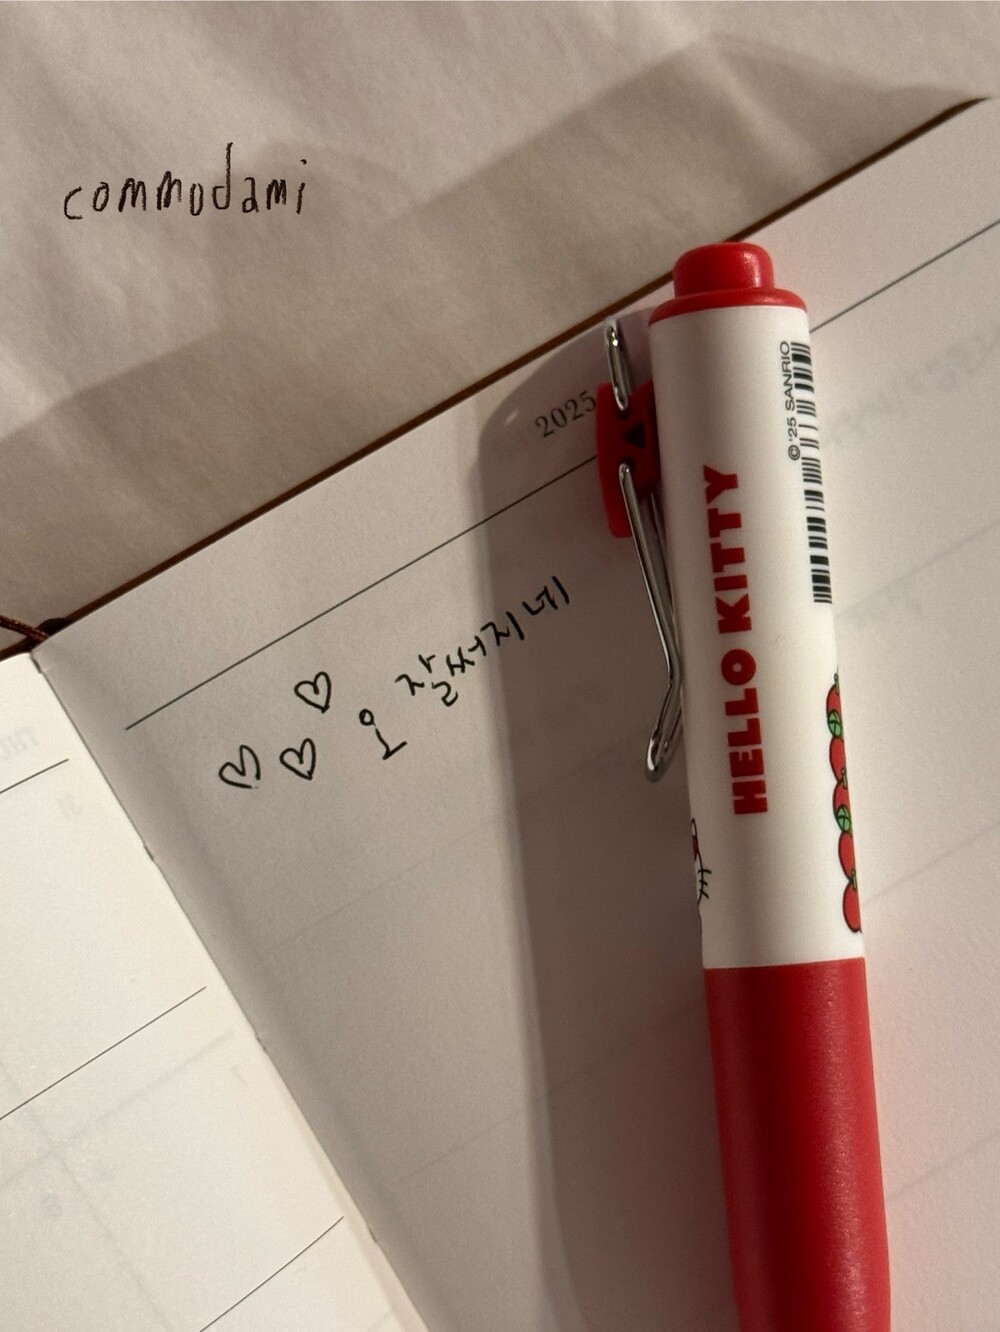 commodami
2025
오 잘써지네
HELLO KITTY
© '25 SANRIO